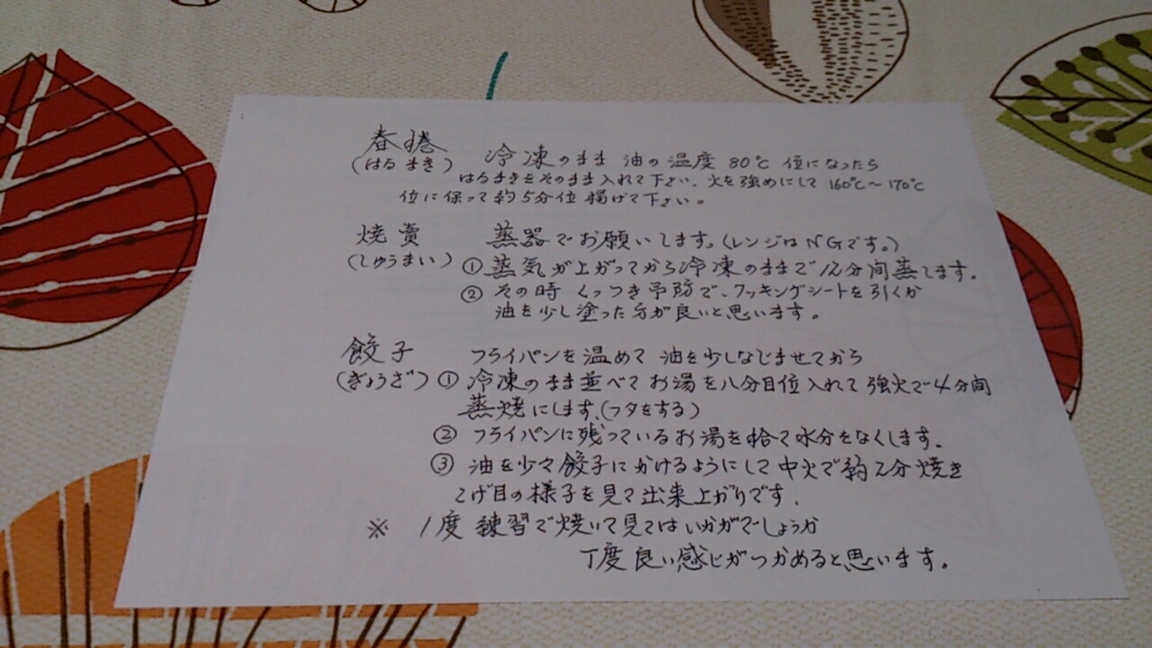 春巻 冷凍のまま 油の温度 80℃ 位になったら
(はるまき) はるまきをそのまま入れて下さい。火を強めにして 160℃～170℃
位に保って約5分位 揚げて下さい。
焼賣 蒸器でお願いします。(レンジはNGです。)
(しゅうまい) ①蒸気が上がってから冷凍のままで12分間蒸します。
② その時 くっつき予防で、クッキングシートを引くか
油を少し塗った方が良いと思います。
餃子 フライパンを温めて 油を少しなじませてから
(ぎょうざ) ①冷凍のまま並べて お湯を八分目位 入れて 強火で4分間
蒸焼にします。(フタをする)
② フライパンに残っているお湯を捨て水分をなくします。
③ 油を少々餃子にかけるようにして中火で約2分焼き
こげ目の様子を見て出来上がりです。
※ 1度 練習で焼いて見てはいかがでしょうか
丁度良い感じがつかめると思います。